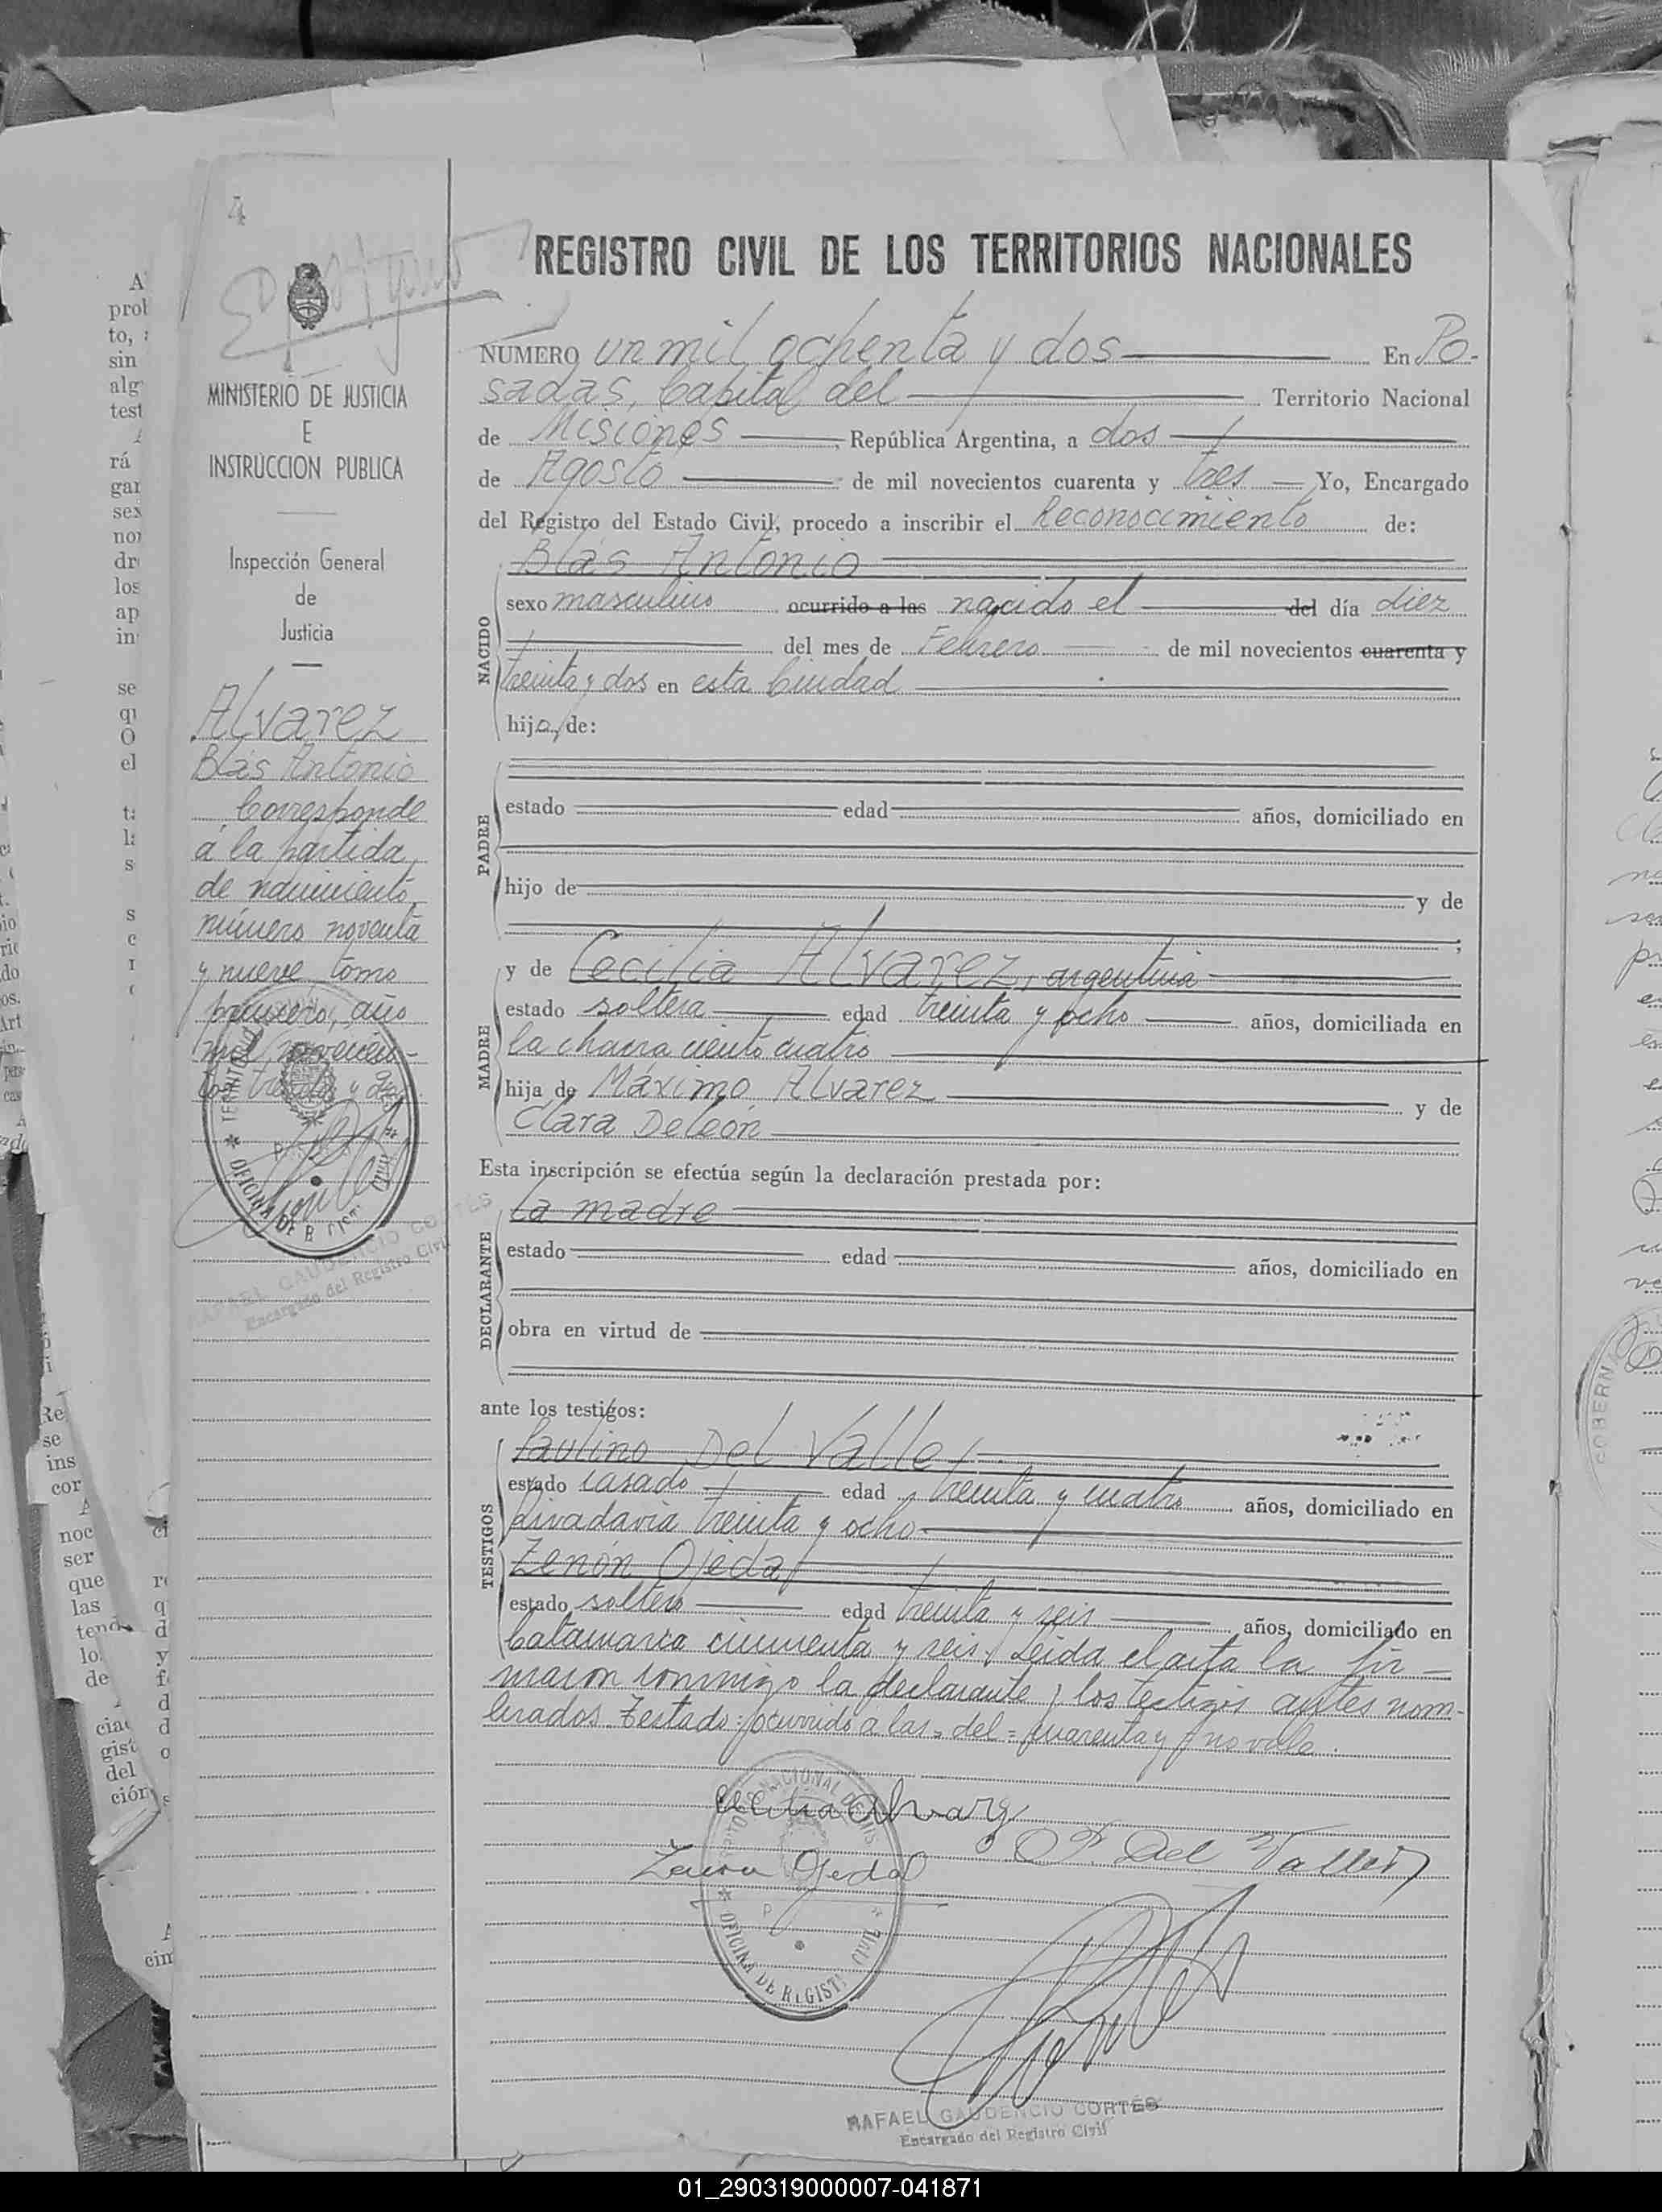 4
REGISTRO CIVIL DE LOS TERRITORIOS NACIONALES
MINISTERIO DE JUSTICIA
E
INSTRUCCION PUBLICA
Inspección General
de
Justicia
Alvarez
Blás Antonio
Corresponde
á la partida
de nacimiento
número noventa
y nueve tomo
primero, año
mil novecien-
tos treinta y dos.
RAFAEL GAUDENCIO CORTÉS
Encargado del Registro Civil
NUMERO un mil ochenta y dos En Po-
sadas, Capital del Territorio Nacional
de Misiones República Argentina, a dos
de Agosto de mil novecientos cuarenta y tres Yo, Encargado
del Registro del Estado Civil, procedo a inscribir el Reconocimiento de:
NACIDO
Blás Antonio
sexo masculino ocurrido a las nacido el del día diez
del mes de Febrero de mil novecientos cuarenta y
treinta y dos en esta Ciudad
hijo, de:
PADRE
estado edad años, domiciliado en
hijo de y de
MADRE
y de Cecilia Alvarez, argentina
estado soltera edad treinta y ocho años, domiciliada en
la chacra ciento cuatro
hija de Máximo Alvarez y de
Clara Deleón
Esta inscripción se efectúa según la declaración prestada por:
DECLARANTE
La madre
estado edad años, domiciliado en
obra en virtud de
ante los testigos:
TESTIGOS
Paulino Del Valle
estado casado edad treinta y cuatro años, domiciliado en
Rivadavia treinta y ocho
Zenón Ojeda
estado soltero edad treinta y seis años, domiciliado en
Catamarca cincuenta y seis. Leida el acta la fir-
maron conmigo la declarante y los testigos antes nom-
brados. Testado: ocurrido a las = del = cuarenta y no vale.
Cecilia Alvarez
Zenon Ojeda
P. Del Valle
OFICINA DE REGISTRO CIVIL
RAFAEL GAUDENCIO CORTÉS
Encargado del Registro Civil
01_290319000007-041871